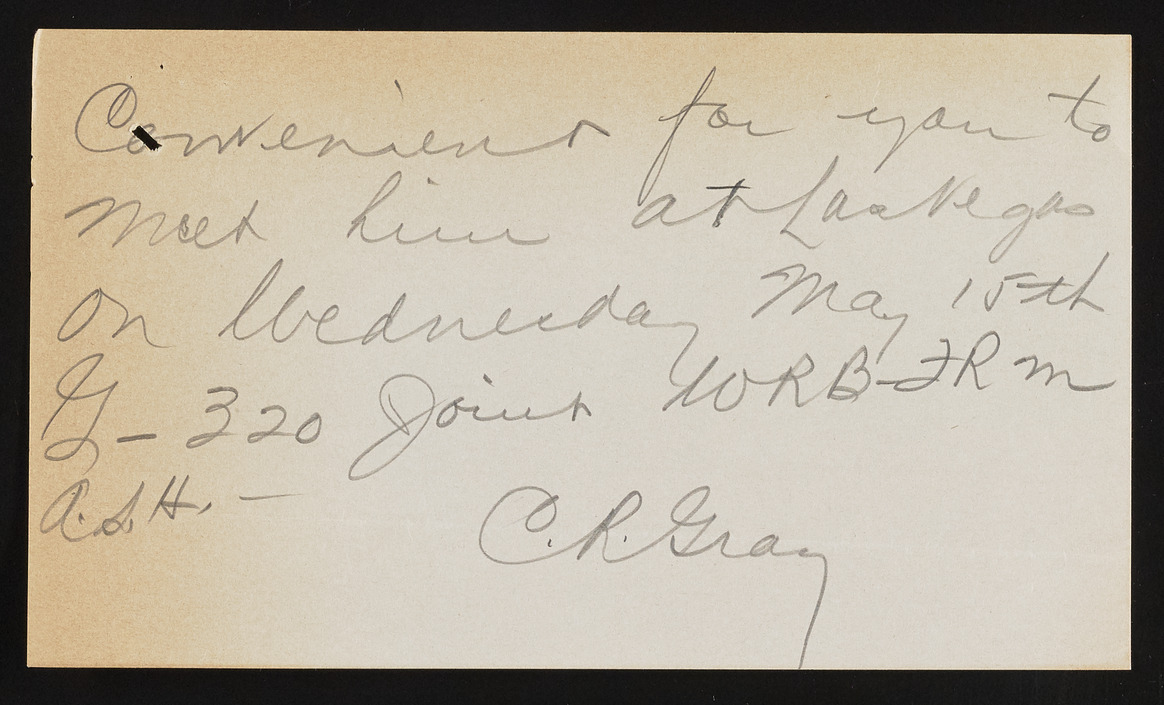 Convenient for you to
meet him at Las Vegas
on Wednesday May 15th
G-320 Joint WRB-FRM
A.S.H. —
C.R. Gray